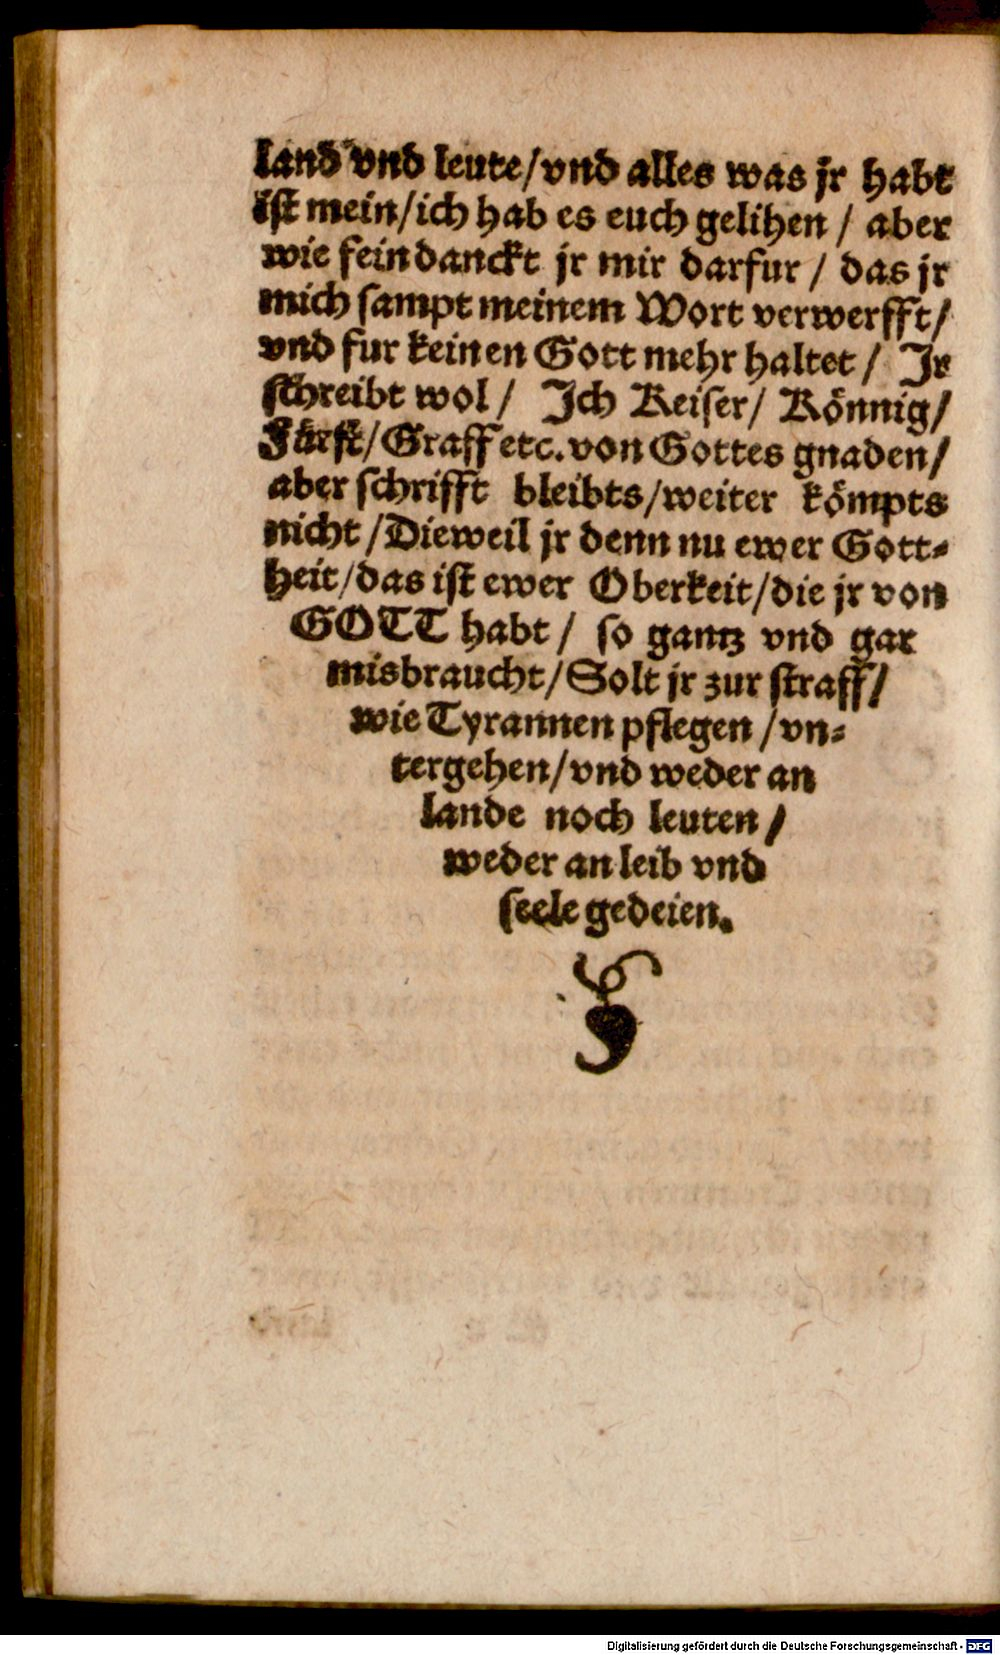 land vnd leute/vnd alles was jr habt
ist mein/ich hab es euch gelihen / aber
wie fein danckt jr mir darfur / das jr
mich sampt meinem Wort verwerfft/
vnd fur keinen Gott mehr haltet / Jr
schreibt wol / Jch Keiser/ Könnig/
Fürst/Graff etc. von Gottes gnaden/
aber schrifft bleibts/weiter kömpts
nicht/Dieweil jr denn nu ewer Gott-
heit/das ist ewer Oberkeit/die jr von
GOTT habt / so gantz vnd gar
misbraucht/Solt jr zur straff/
wie Tyrannen pflegen /vn-
tergehen/vnd weder an
lande noch leuten/
weder an leib vnd
seele gedeien.
Digitalisierung gefördert durch die Deutsche Forschungsgemeinschaft - DFG